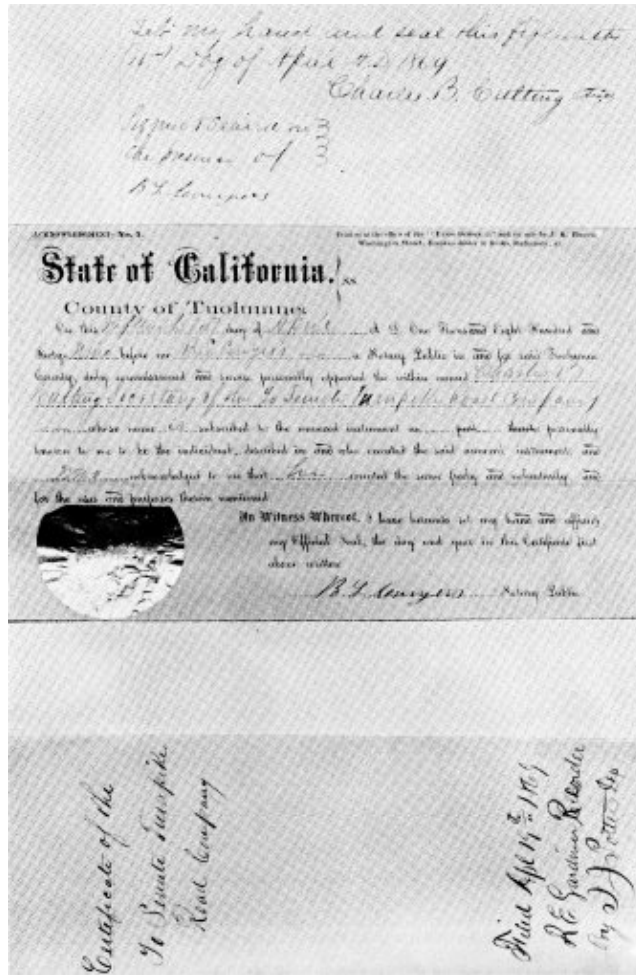 Set my hand and seal this
Day of April A D 1869
Charles B. Cutting
Signed & Seald in
the presence of
B L Conyers
ACKNOWLEDGMENT—No. 1.
State of California. } ss.
County of Tuolumne.
On this day of April A. D. One Thousand Eight Hundred and
Sixty Nine before me a Notary Public in and for said Tuolumne
County, duly commissioned and sworn personally appeared the within named Charles B
Cutting Secretary of the Yo Semite Turnpike Road Company
whose name is subscribed to the annexed instrument as party thereto personally
known to me to be the individual described in and who executed the said annexed instrument, and
acknowledged to me that he executed the same freely and voluntarily and
for the uses and purposes therein mentioned
In Witness Whereof, I have hereunto set my hand and affixed
my Official Seal, the day and year in this Certificate first
above written
B. L. Conyers Notary Public
Certificate of the
Yo Semite Turnpike
Road Company
Filed Apl 19th 1869
R E Gardiner Recorder
by J Potter Dep